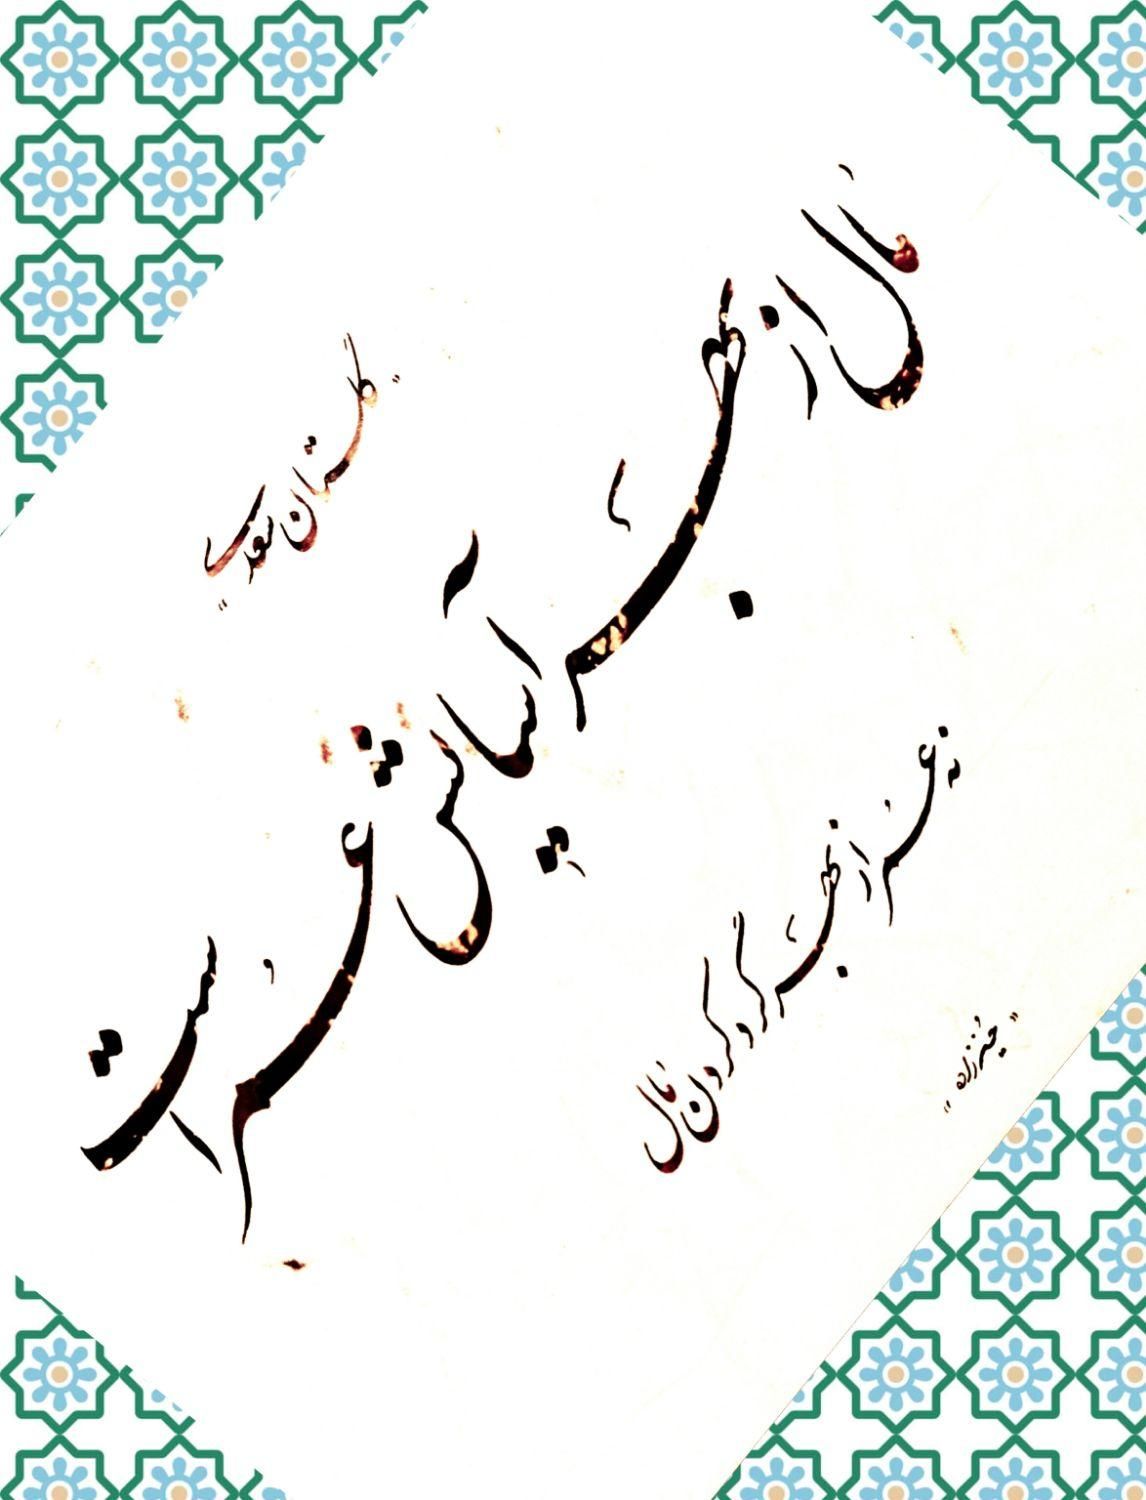 مال از بهر آسایش عمر است
نه عمر از بهر گرد کردن مال
"گلستان سعدی"